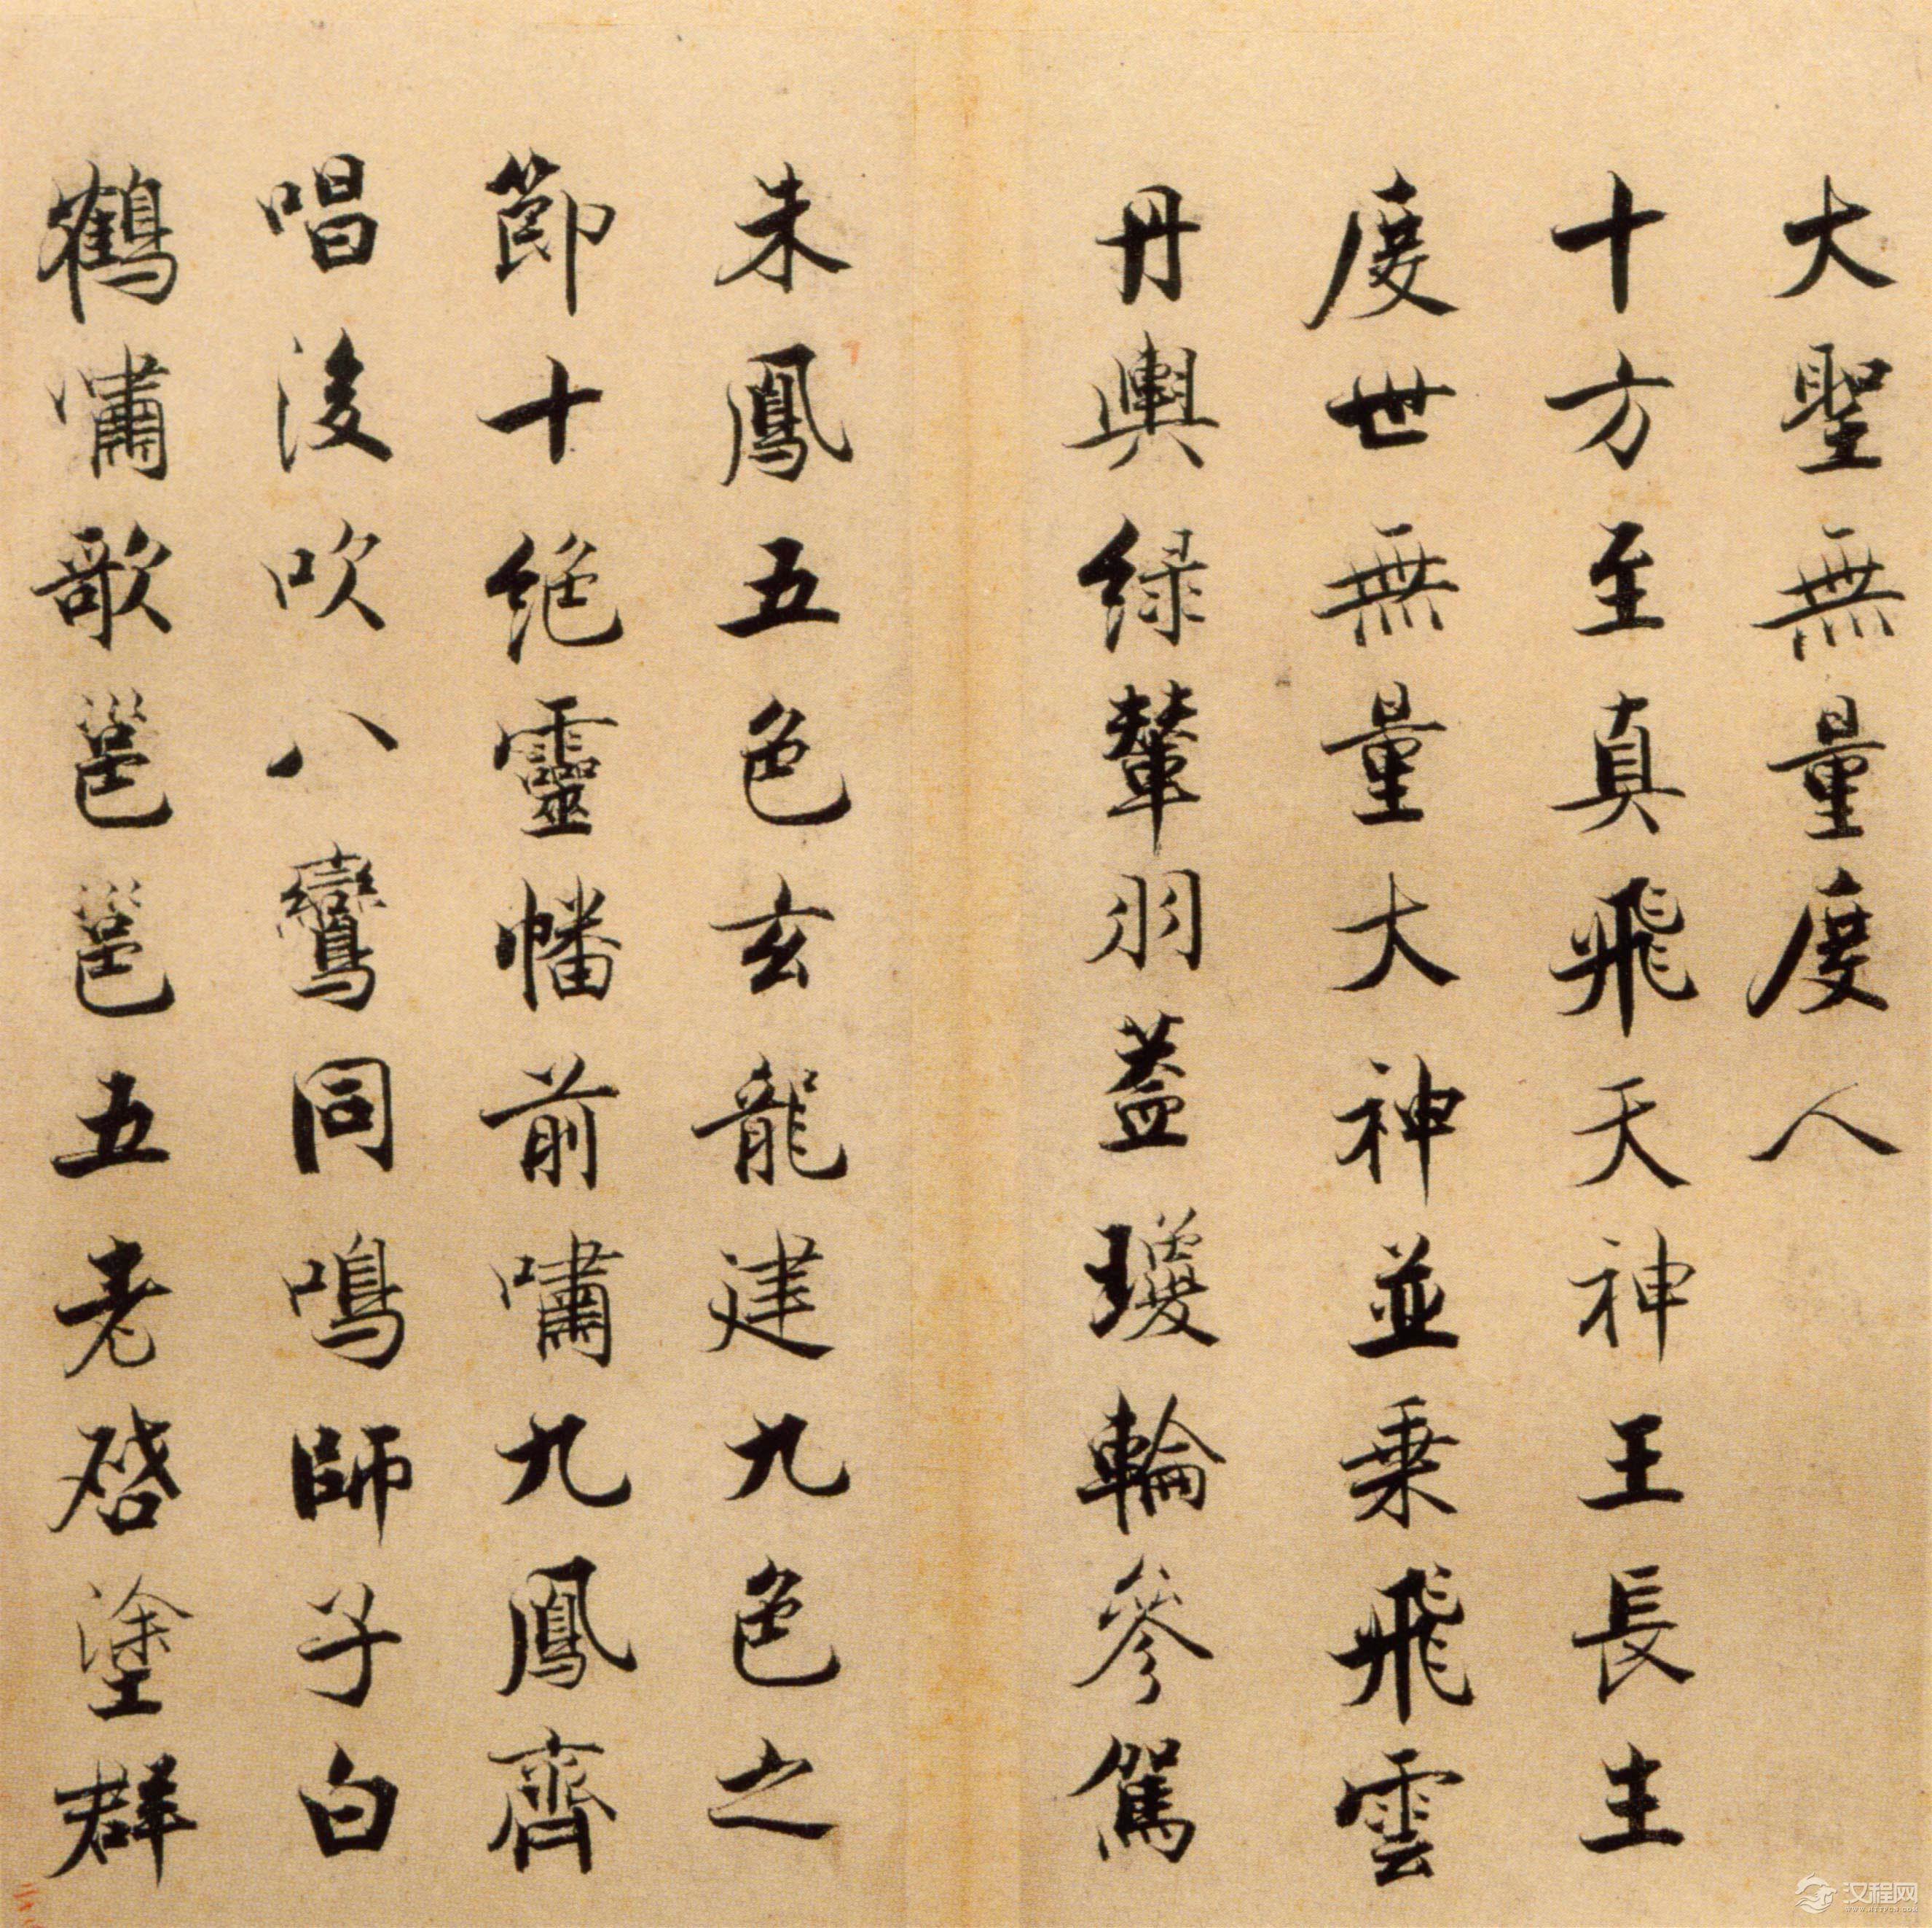 大聖無量度人
十方至真飛天神王長主
度世無量大神並乗飛雲
丹輿緑輦羽蓋瓊輪參駕
朱鳳五色玄龍建九色之
節十絶靈幡前嘯九鳳齊
唱後吹八鸞同鳴師子白
鶴嘯歌邕邕五老啓塗群
汉程网